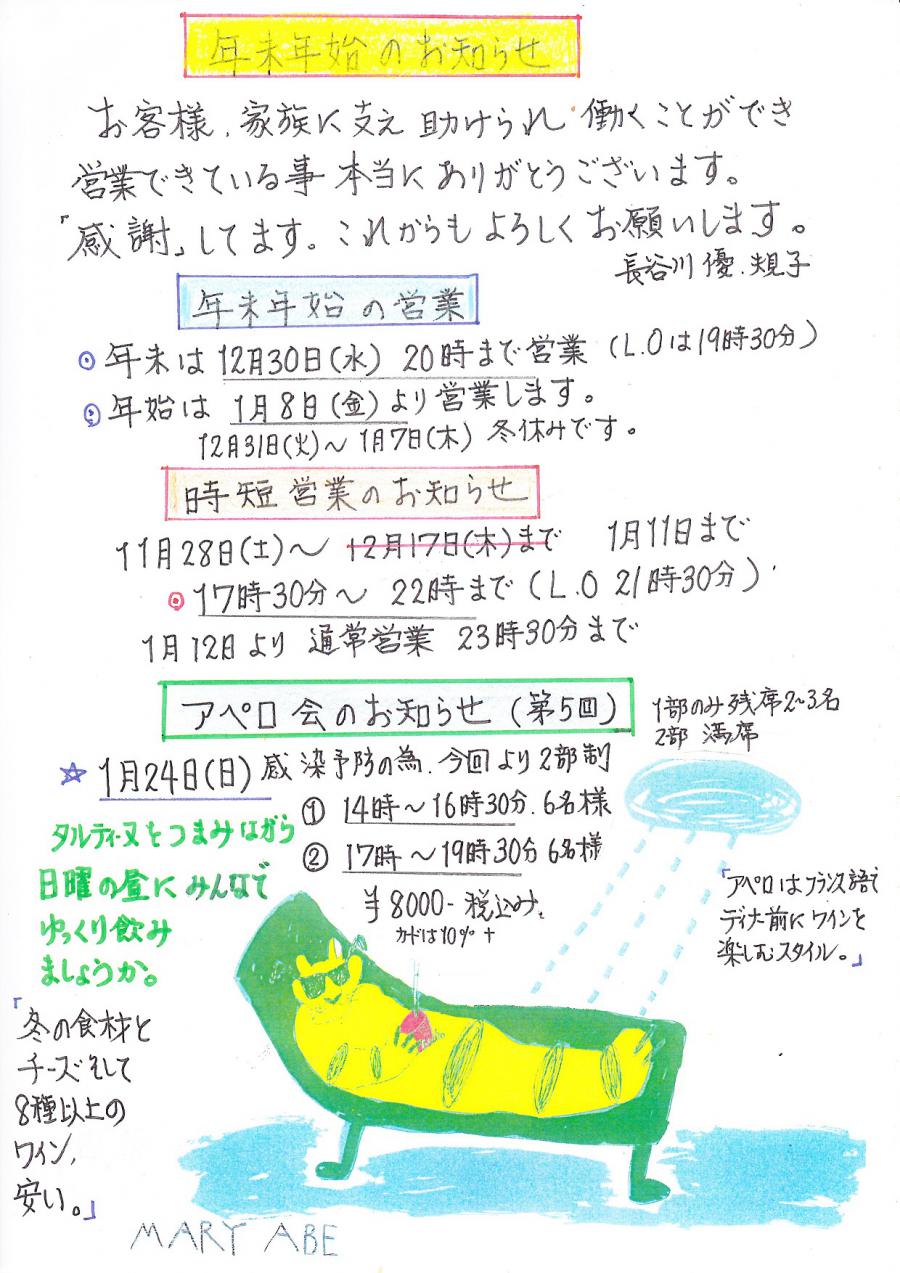 年末年始のお知らせ
お客様、家族に支え助けられ 働くことができ
営業できている事 本当にありがとうございます。
「感謝」してます。これからもよろしくお願いします。
長谷川 優・規子
年末年始の営業
年末は 12月30日(水) 20時まで営業 (L.Oは19時30分)
年始は 1月8日(金)より営業します。
12月31日(火)〜1月7日(木) 冬休みです。
時短営業のお知らせ
11月28日(土)〜 12月17日(木)まで 1月11日まで
17時30分〜 22時まで (L.O 21時30分)
1月12日より 通常営業 23時30分まで
アペロ会のお知らせ (第5回)
1部のみ残席2〜3名
2部 満席
☆ 1月24日(日) 感染予防の為、今回より2部制
① 14時〜16時30分. 6名様
② 17時〜19時30分 6名様
¥8000- 税込み。
カードは10%+
タルティーヌをつまみながら
日曜の昼にみんなで
ゆっくり飲み
ましょうか。
「アペロはフランス語で
ディナー前にワインを
楽しむスタイル。」
「冬の食材と
チーズそして
8種以上の
ワイン、
安い。」
MARY ABE